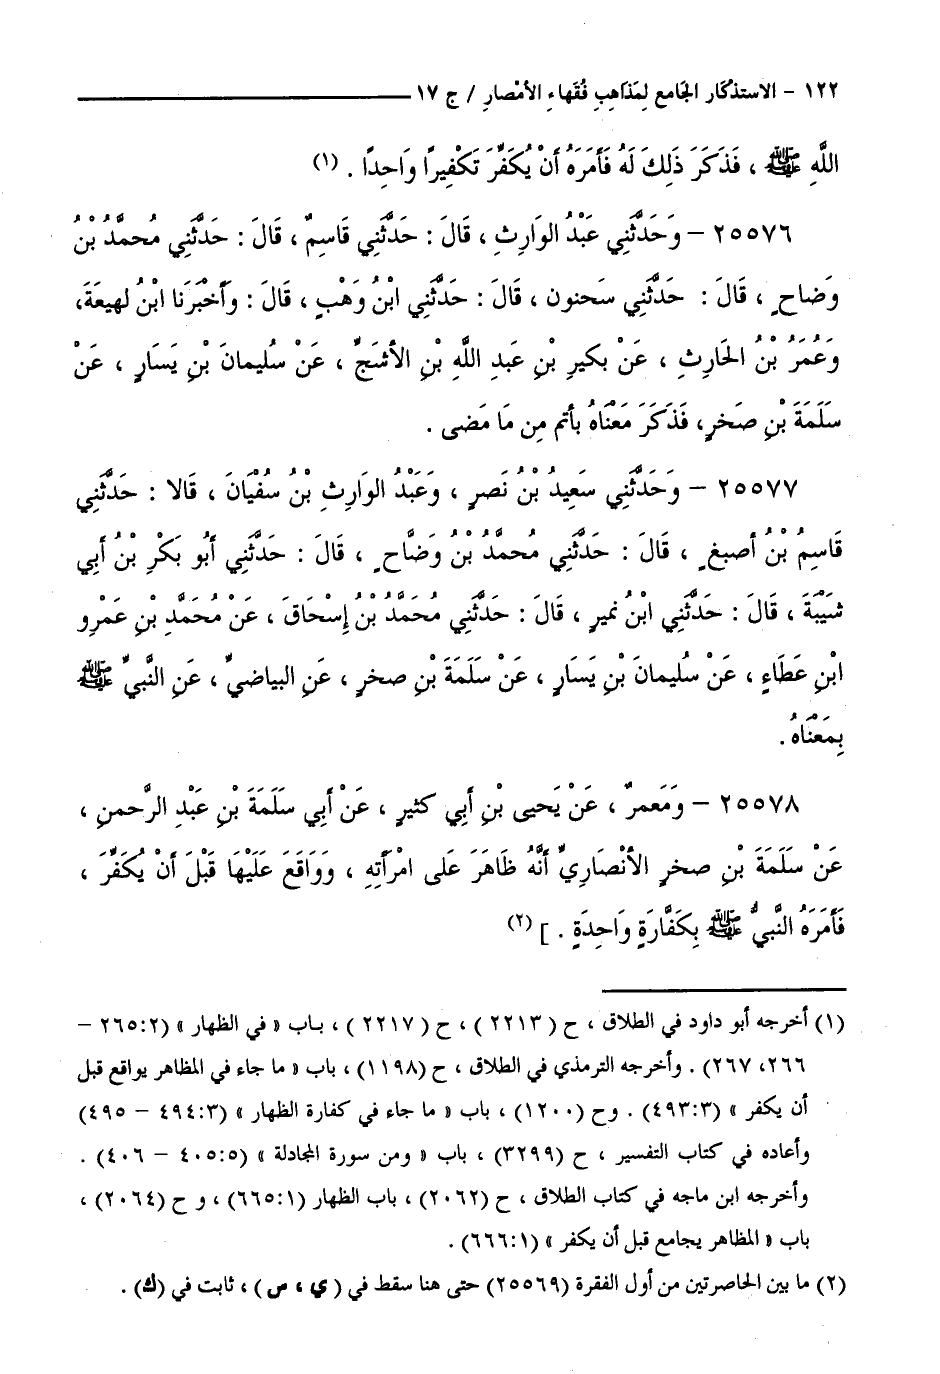 ١٢٢ - الاستذكار الجامع لمَذاهِبِ فُقَهاءِ الأمْصارِ / ج ١٧
اللَّهِ ﷺ ، فَذَكَرَ ذَلِكَ لَهُ فَأَمَرَهُ أَنْ يُكَفِّرَ تَكْفِيرًا وَاحِدًا . (١)
٢٥٥٧٦ - وَحَدَّثَنِي عَبْدُ الوَارِثِ ، قَالَ : حَدَّثَنِي قَاسِمٌ ، قَالَ : حَدَّثَنِي مُحمَّدُ بْنُ
وَضاحٍ ، قَالَ : حَدَّثَنِي سَحنون ، قَالَ : حَدَّثَنِي ابْنُ وَهْبٍ ، قَالَ : وَأَخْبَرَنا ابْنُ لهيعَةَ،
وَعُمَرُ بْنُ الحَارِثِ ، عَنْ بكيرِ بْنِ عَبدِ اللَّهِ بْنِ الأشَجِّ ، عَنْ سُليمانَ بْنِ يَسَارٍ ، عَنْ
سَلَمَةَ بْنِ صَخرٍ، فَذَكَرَ مَعْنَاهُ بأتم مِن مَا مَضى .
٢٥٥٧٧ - وَحَدَّثَنِي سَعِيدُ بْنُ نَصرٍ ، وَعَبْدُ الوَارِثِ بْنُ سُفْيَانَ ، قَالا : حَدَّثَنِي
قَاسِمُ بْنُ أصبغٍ ، قَالَ : حَدَّثَنِي مُحمَّدُ بْنُ وَضَّاحٍ ، قَالَ : حَدَّثَنِي أَبُو بَكْرِ بْنُ أَبِي
شَيْبَةَ ، قَالَ : حَدَّثَنِي ابْنُ نميرٍ ، قَالَ : حَدَّثَنِي مُحَمَّدُ بْنُ إِسْحَاقَ ، عَنْ مُحَمَّدِ بْنِ عَمْرِو
ابْنِ عَطَاءٍ ، عَنْ سُليمانَ بْنِ يَسَارٍ ، عَنْ سَلَمَةَ بْنِ صخرٍ ، عَنِ البياضيِّ ، عَنِ النَّبيِّ ﷺ
بِمَعْنَاهُ .
٢٥٥٧٨ - وَمَعمرٌ ، عَنْ يَحيى بْنِ أَبِي كثيرٍ ، عَنْ أَبِي سَلَمَةَ بْنِ عَبْدِ الرَّحمنِ ،
عَنْ سَلَمَةَ بْنِ صخرٍ الأَنْصَارِيِّ أَنَّهُ ظَاهَرَ عَلى امْرَأَتِهِ ، وَوَاقَعَ عَلَيْهَا قَبْلَ أَنْ يُكَفِّرَ ،
فَأَمَرَهُ النَّبيُّ ﷺ بِكَفَّارَةٍ وَاحِدَةٍ . ] (٢)
(١) أخرجه أبو داود في الطلاق ، ح ( ٢٢١٣ ) ، ح ( ٢٢١٧ ) ، باب « في الظهار » (٢٦٥:٢ -
٢٦٦، ٢٦٧) . وأخرجه الترمذي في الطلاق ، ح (١١٩٨) ، باب « ما جاء في المظاهر يواقع قبل
أن يكفر » (٤٩٣:٣) . وح (١٢٠٠) ، باب « ما جاء في كفارة الظهار » (٤٩٤:٣ - ٤٩٥)
وأعاده في كتاب التفسير ، ح (٣٢٩٩) ، باب « ومن سورة المجادلة » (٤٠٥:٥ - ٤٠٦) .
وأخرجه ابن ماجه في كتاب الطلاق ، ح (٢٠٦٢) ، باب الظهار (٦٦٥:١) ، و ح (٢٠٦٤) ،
باب « المظاهر يجامع قبل أن يكفر » (٦٦٦:١) .
(٢) ما بين الحاصرتين من أول الفقرة (٢٥٥٦٩) حتى هنا سقط في ( ي ، ص ) ، ثابت في (ك) .